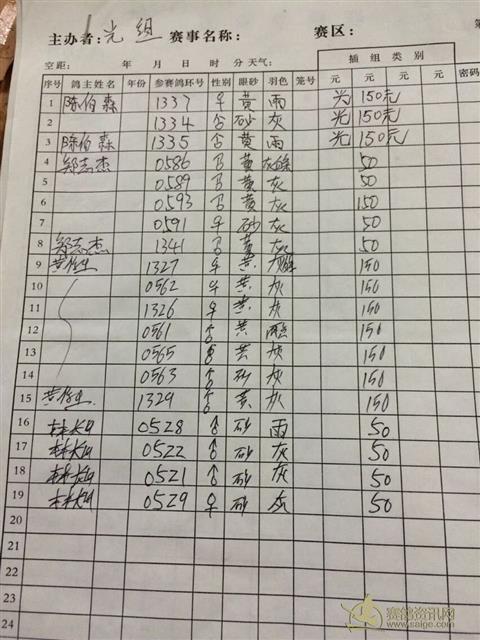 主办者: 光 组 赛事名称: 赛区:
空距: 年 月 日 时 分 天气: 插组类别
序号 鸽主姓名 年份 参赛鸽环号 性别 眼砂 羽色 笼号 元 元 元 元 密码
1 陈伯森 1337 ♀ 黄 雨 光 150元
2 1334 砂 灰 光 150元
3 陈伯森 1335 黄 雨 光 150元
4 郑志杰 0586 黄 50
5 0589 黄 灰 50
6 0593 黄 灰 150
7 0591 ♀ 砂 灰 50
8 郑志杰 1341 黄 灰 50
9 1327 ♀ 黄 150
10 0562 ♀ 黄 灰 150
11 1326 ♀ 黄 灰 150
12 0561 ♂ 黄 150
13 0565 黄 灰 150
14 0563 ♂ 砂 灰 150
15 1329 ♂ 黄 灰 150
16 0528 ♂ 砂 雨 50
17 0522 ♂ 砂 灰 50
18 0521 ♂ 砂 灰 50
19 0529 ♀ 砂 50
20
21
22
23
24
赛鸽资讯网
www.saige.com